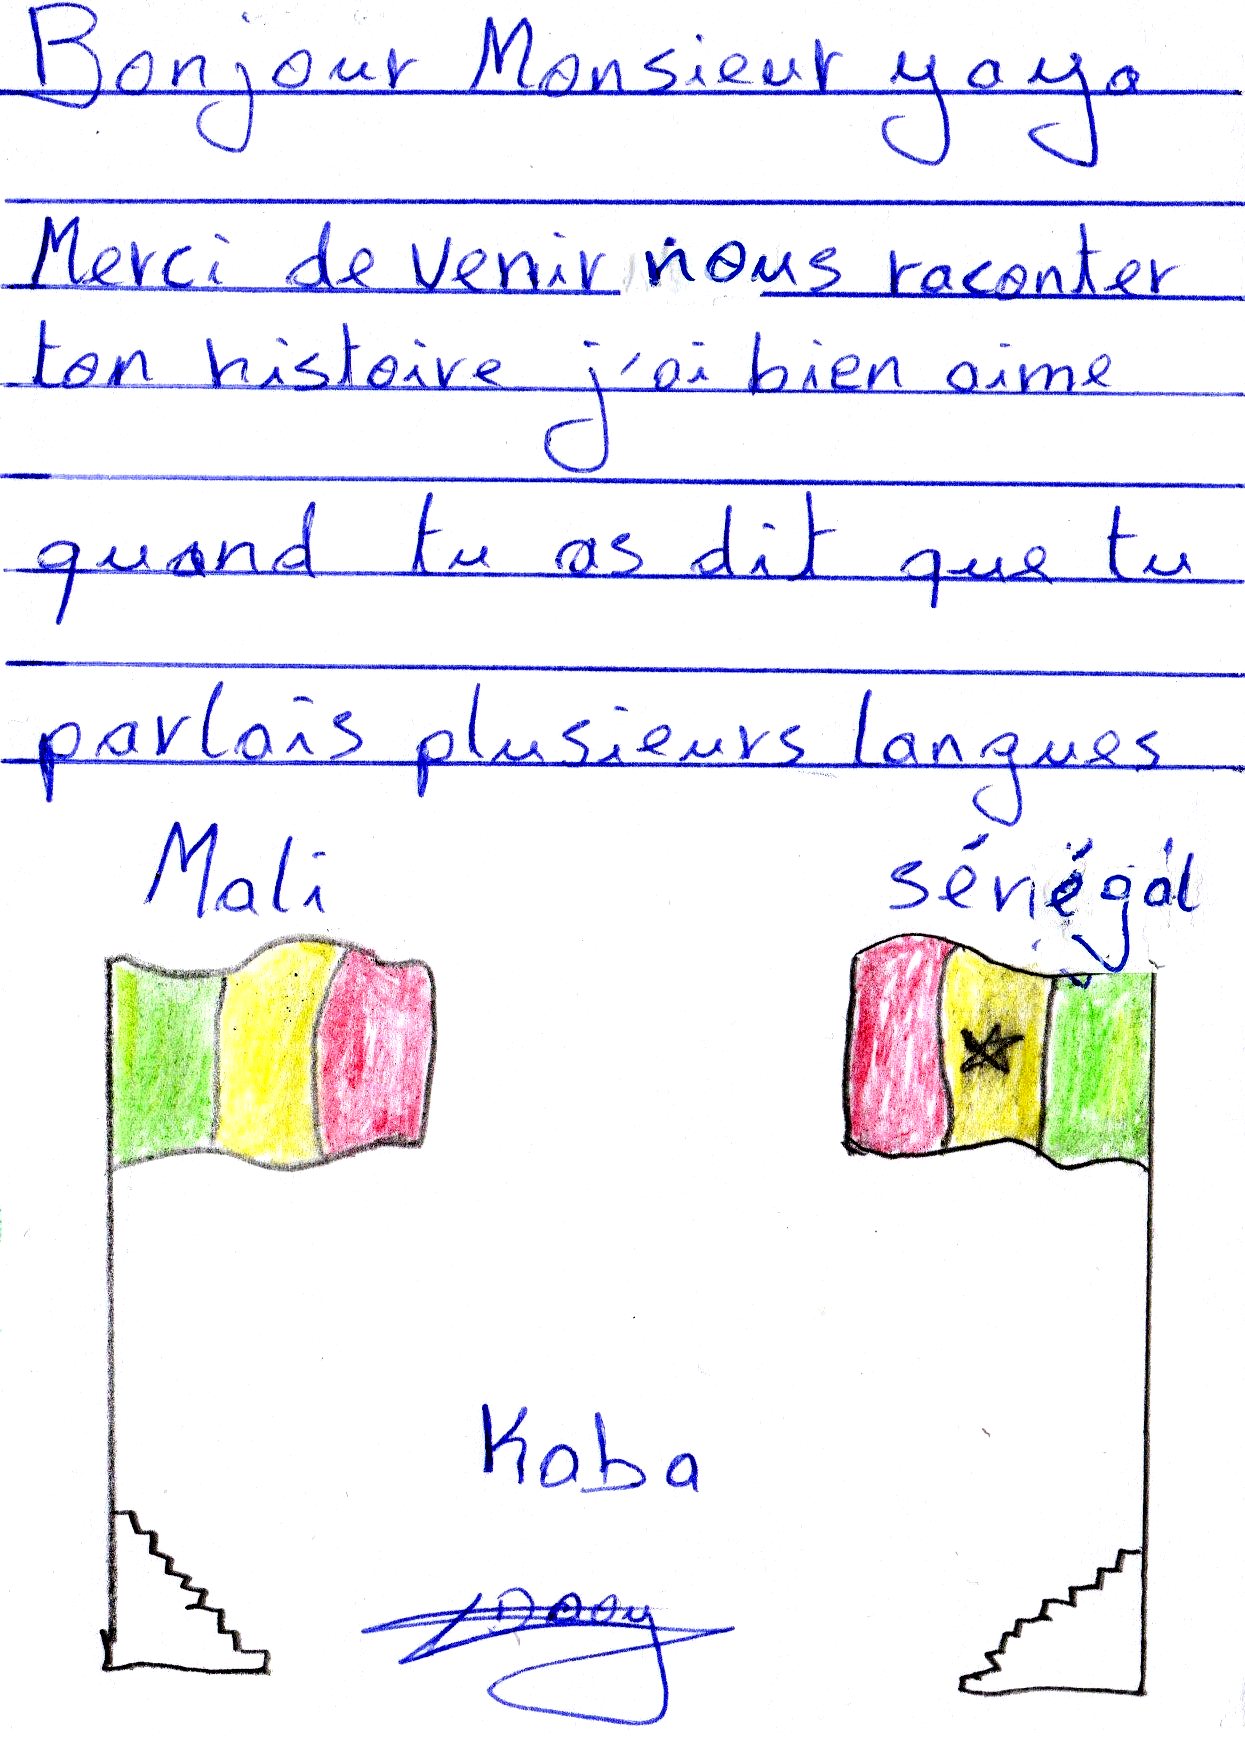 Bonjour Monsieur yaya
Merci de venir nous raconter
ton histoire j'ai bien aime
quand tu as dit que tu
parlais plusieurs langues
Mali sénégal
Koba